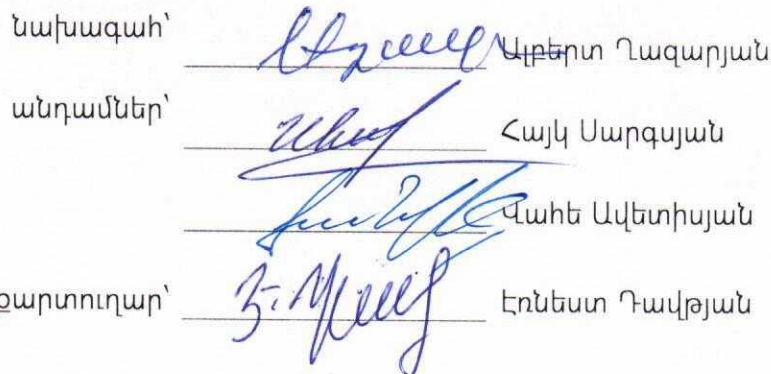 նախագահ՝ Ալբերտ Ղազարյան
անդամներ՝ Հայկ Սարգսյան
Վահե Ավետիսյան
քարտուղար՝ Էռնեստ Դավթյան